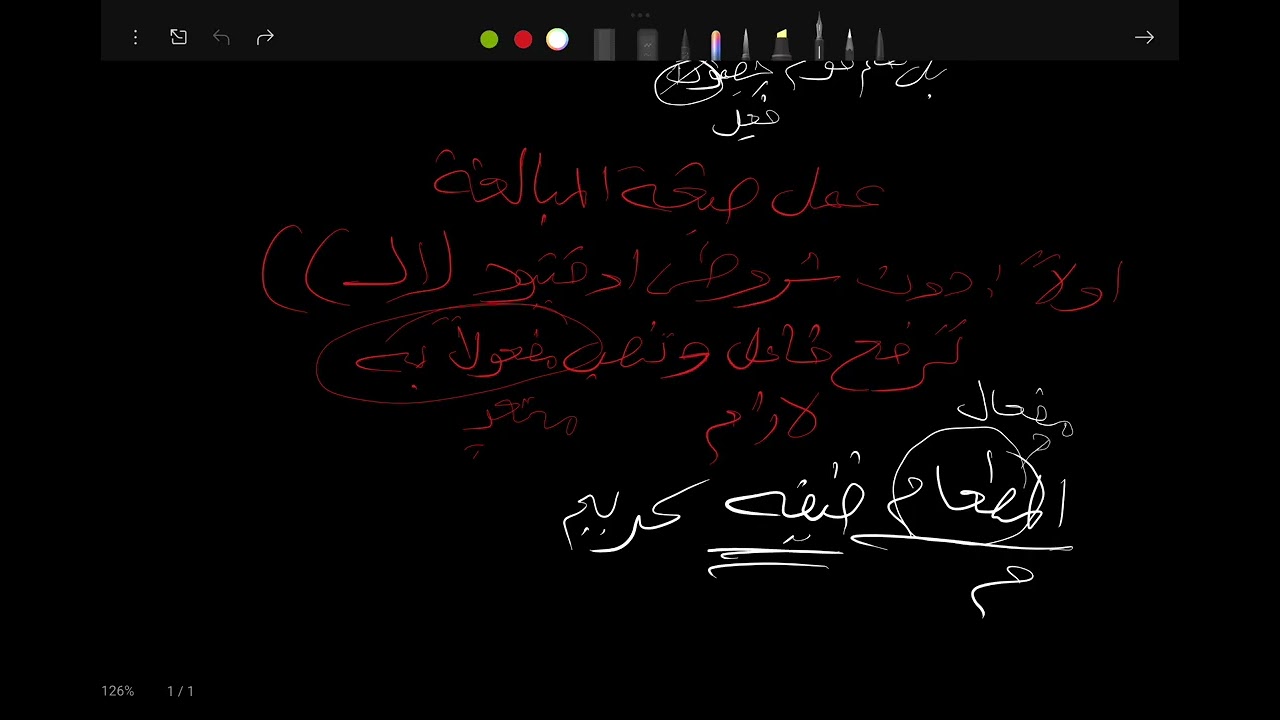 بل هم قوم خصمون
فعل
عمل صيغة المبالغة
اولاً : دون شروط او قيود (( الـ ))
ترفع فاعل وتنصب مفعولاً به
لازم متعدٍ
مفعال
المطعام ضيفه كريم
م
126% 1 / 1